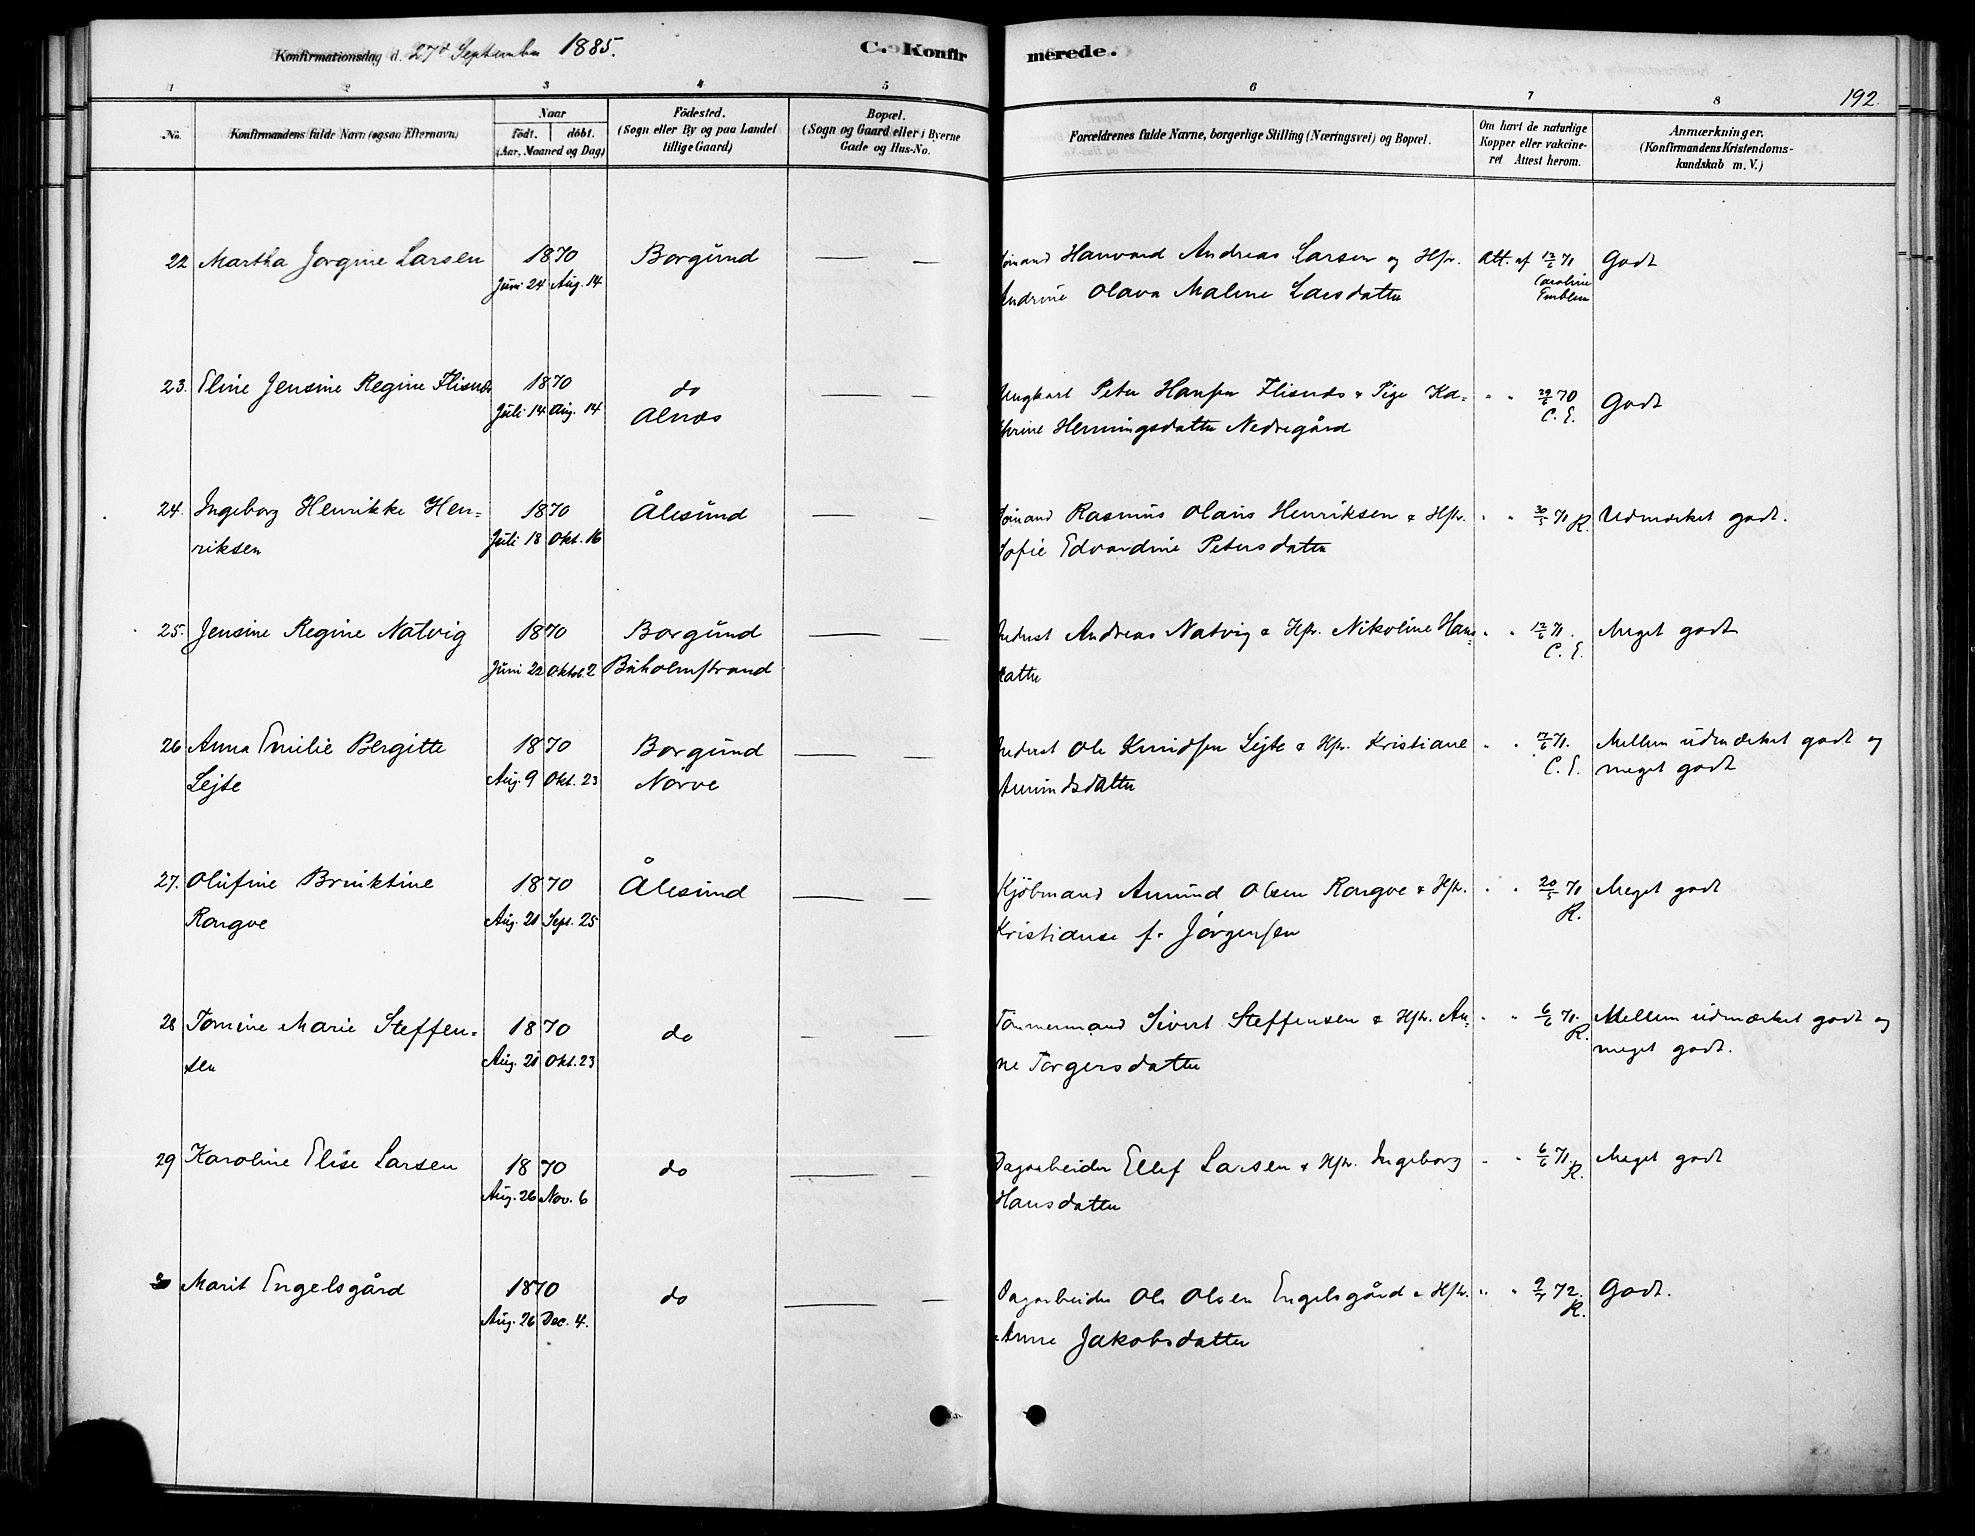 Konfirmationsdag d. 27d September 1885.
C. Konfir merede.
192.
1 2 3 4 5 6 7 8
No. Konfirmandens fulde Navn (ogsaa Efternavn) Naar födt. döbt. (Aar, Maaned og Dag)
Födested. (Sogn eller By og paa Landet tillige Gaard)
Bopæl. (Sogn og Gaard eller i Byerne Gade og Hus-No.
Forældrenes fulde Navne, borgerlige Stilling (Næringsvei) og Bopæl.
Om havt de naturlige Kopper eller vakcineret Attest herom.
Anmærkninger. (Konfirmandens Kristendomskundskab m. V.)
22 Martha Jorgine Larsen 1870 Borgund — — Hanvard Andreas Larsen og Hstr. Att. af 12/6 71 Godt
Juni 24 Aug. 14 Andrine Olava Maline Larsdatter Caroline Emblem
23. Eline Jensine Regine Flisnes 1870 do — — Ungkarl Peter Hansen Flisnes & Pige Ka= " " 29/6 70 Godt
Juli 14 Aug. 14 Alnæs thrine Henningsdatter Nedregård C. E.
24. Ingeborg Henrikke Hen= 1870 Ålesund — — Rasmus Olaus Henriksen & Hstr. " " 30/5 71 R. Udmærket godt.
riksen Juli 18 Okt. 16 Sofie Edvardine Petersdatter
25. Jensine Regine Natvig 1870 Borgund — — Inderst Andreas Natvig & Hstr. Nikoline Hans= " " 12/6 71. Meget godt
Juni 22 Oktob. 2 Buholmstrand datter C. E.
26 Anna Emilie Bergitte 1870 Borgund — — Inderst Ole Knudsen Lejte & Hstr. Kristiane " " 12/6 71. Mellem udmærket godt og
Lejte Aug. 9 Okt. 23 Nørve Amundsdatter C. E. meget godt
27. Olufine Brinktine 1870 Ålesund — — Kjöbmand Amund Olsen Rongve & Hstr. " " 20/5 71 Meget godt
Rongve Aug. 21 Sept. 25 Kristianse f. Jørgensen R.
28 Tomine Marie Steffen= 1870 do — — Tömmermand Sivert Steffensen & Hstr. An= " " 6/6 71. Mellem udmærket godt og
sen Aug. 21 Okt. 23 ne Torgersdatter R. meget godt.
29 Karoline Elise Larsen 1870 do — — Dagarbeider Ellef Larsen & Hstr. Ingeborg " " 6/6 71. Meget godt
Aug. 26 Nov. 6 Hansdatter R.
30 Marit Engelsgård 1870 do — — Dagarbeider Ole Olsen Engelsgård & Hstr. " " 9/7 72. Godt.
Aug. 26 Dec. 4. Anne Jakobsdatter R.